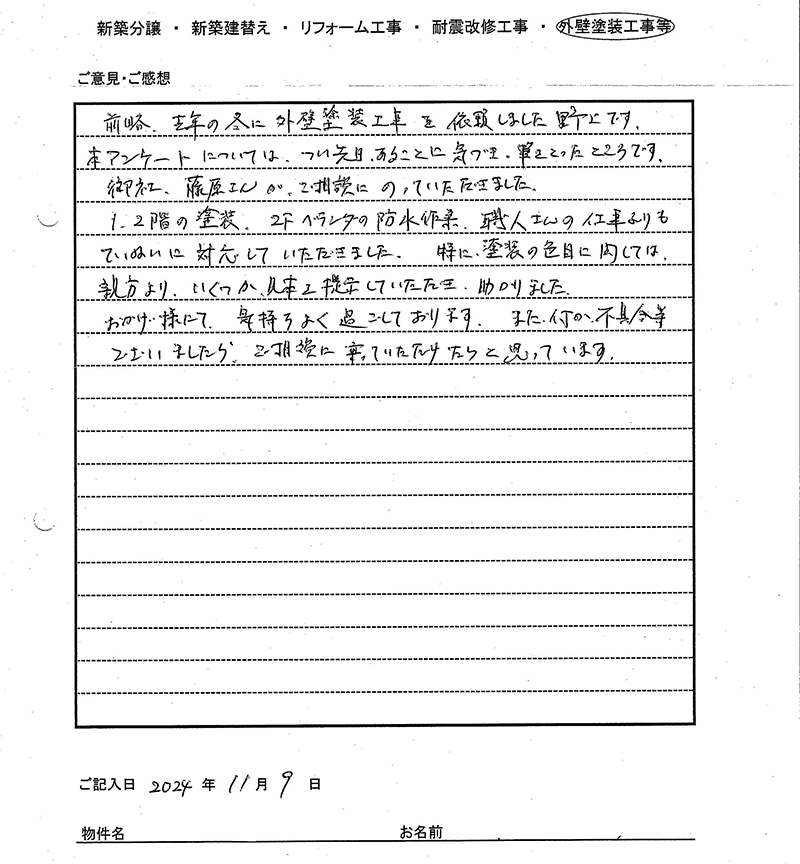 新築分譲 ・ 新築建替え ・ リフォーム工事 ・ 耐震改修工事 ・ 外壁塗装工事等
ご意見・ご感想
前略、去年の冬に外壁塗装工事を依頼しました野上です。
本アンケートについては、つい先日、あることに気づき、筆をとったところです。
御社、藤原さんが、ご相談にのっていただきました。
1、2階の塗装、2Fベランダの防水作業、職人さんの仕事ぶりも
ていねいに対応していただきました。 特に、塗装の色目に関しては、
親方より、いくつか、見本を提示していただき、助かりました。
おかげ様にて、気持ちよく過ごしております。 また、何か、不具合等
ございましたら、ご相談に乗っていただけたらと思っています。
ご記入日 2024 年 11 月 9 日
物件名 お名前